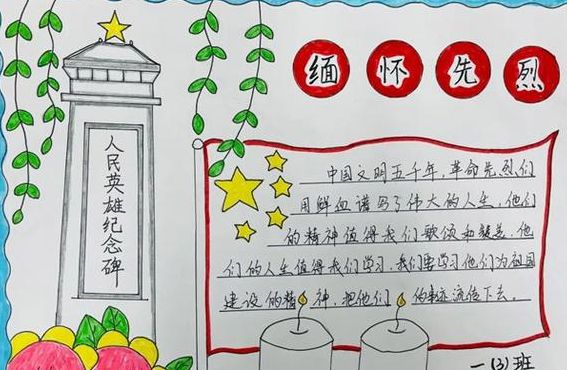 缅怀先烈
人民英雄纪念碑
中国文明五千年，革命先烈们
用鲜血谱写了伟大的人生，他们
的精神值得我们歌颂和疑差，他
们的人生值得我们学习，我们要学习他们为祖国
建设的精神，把他们的事迹流传下去。
一(3)班